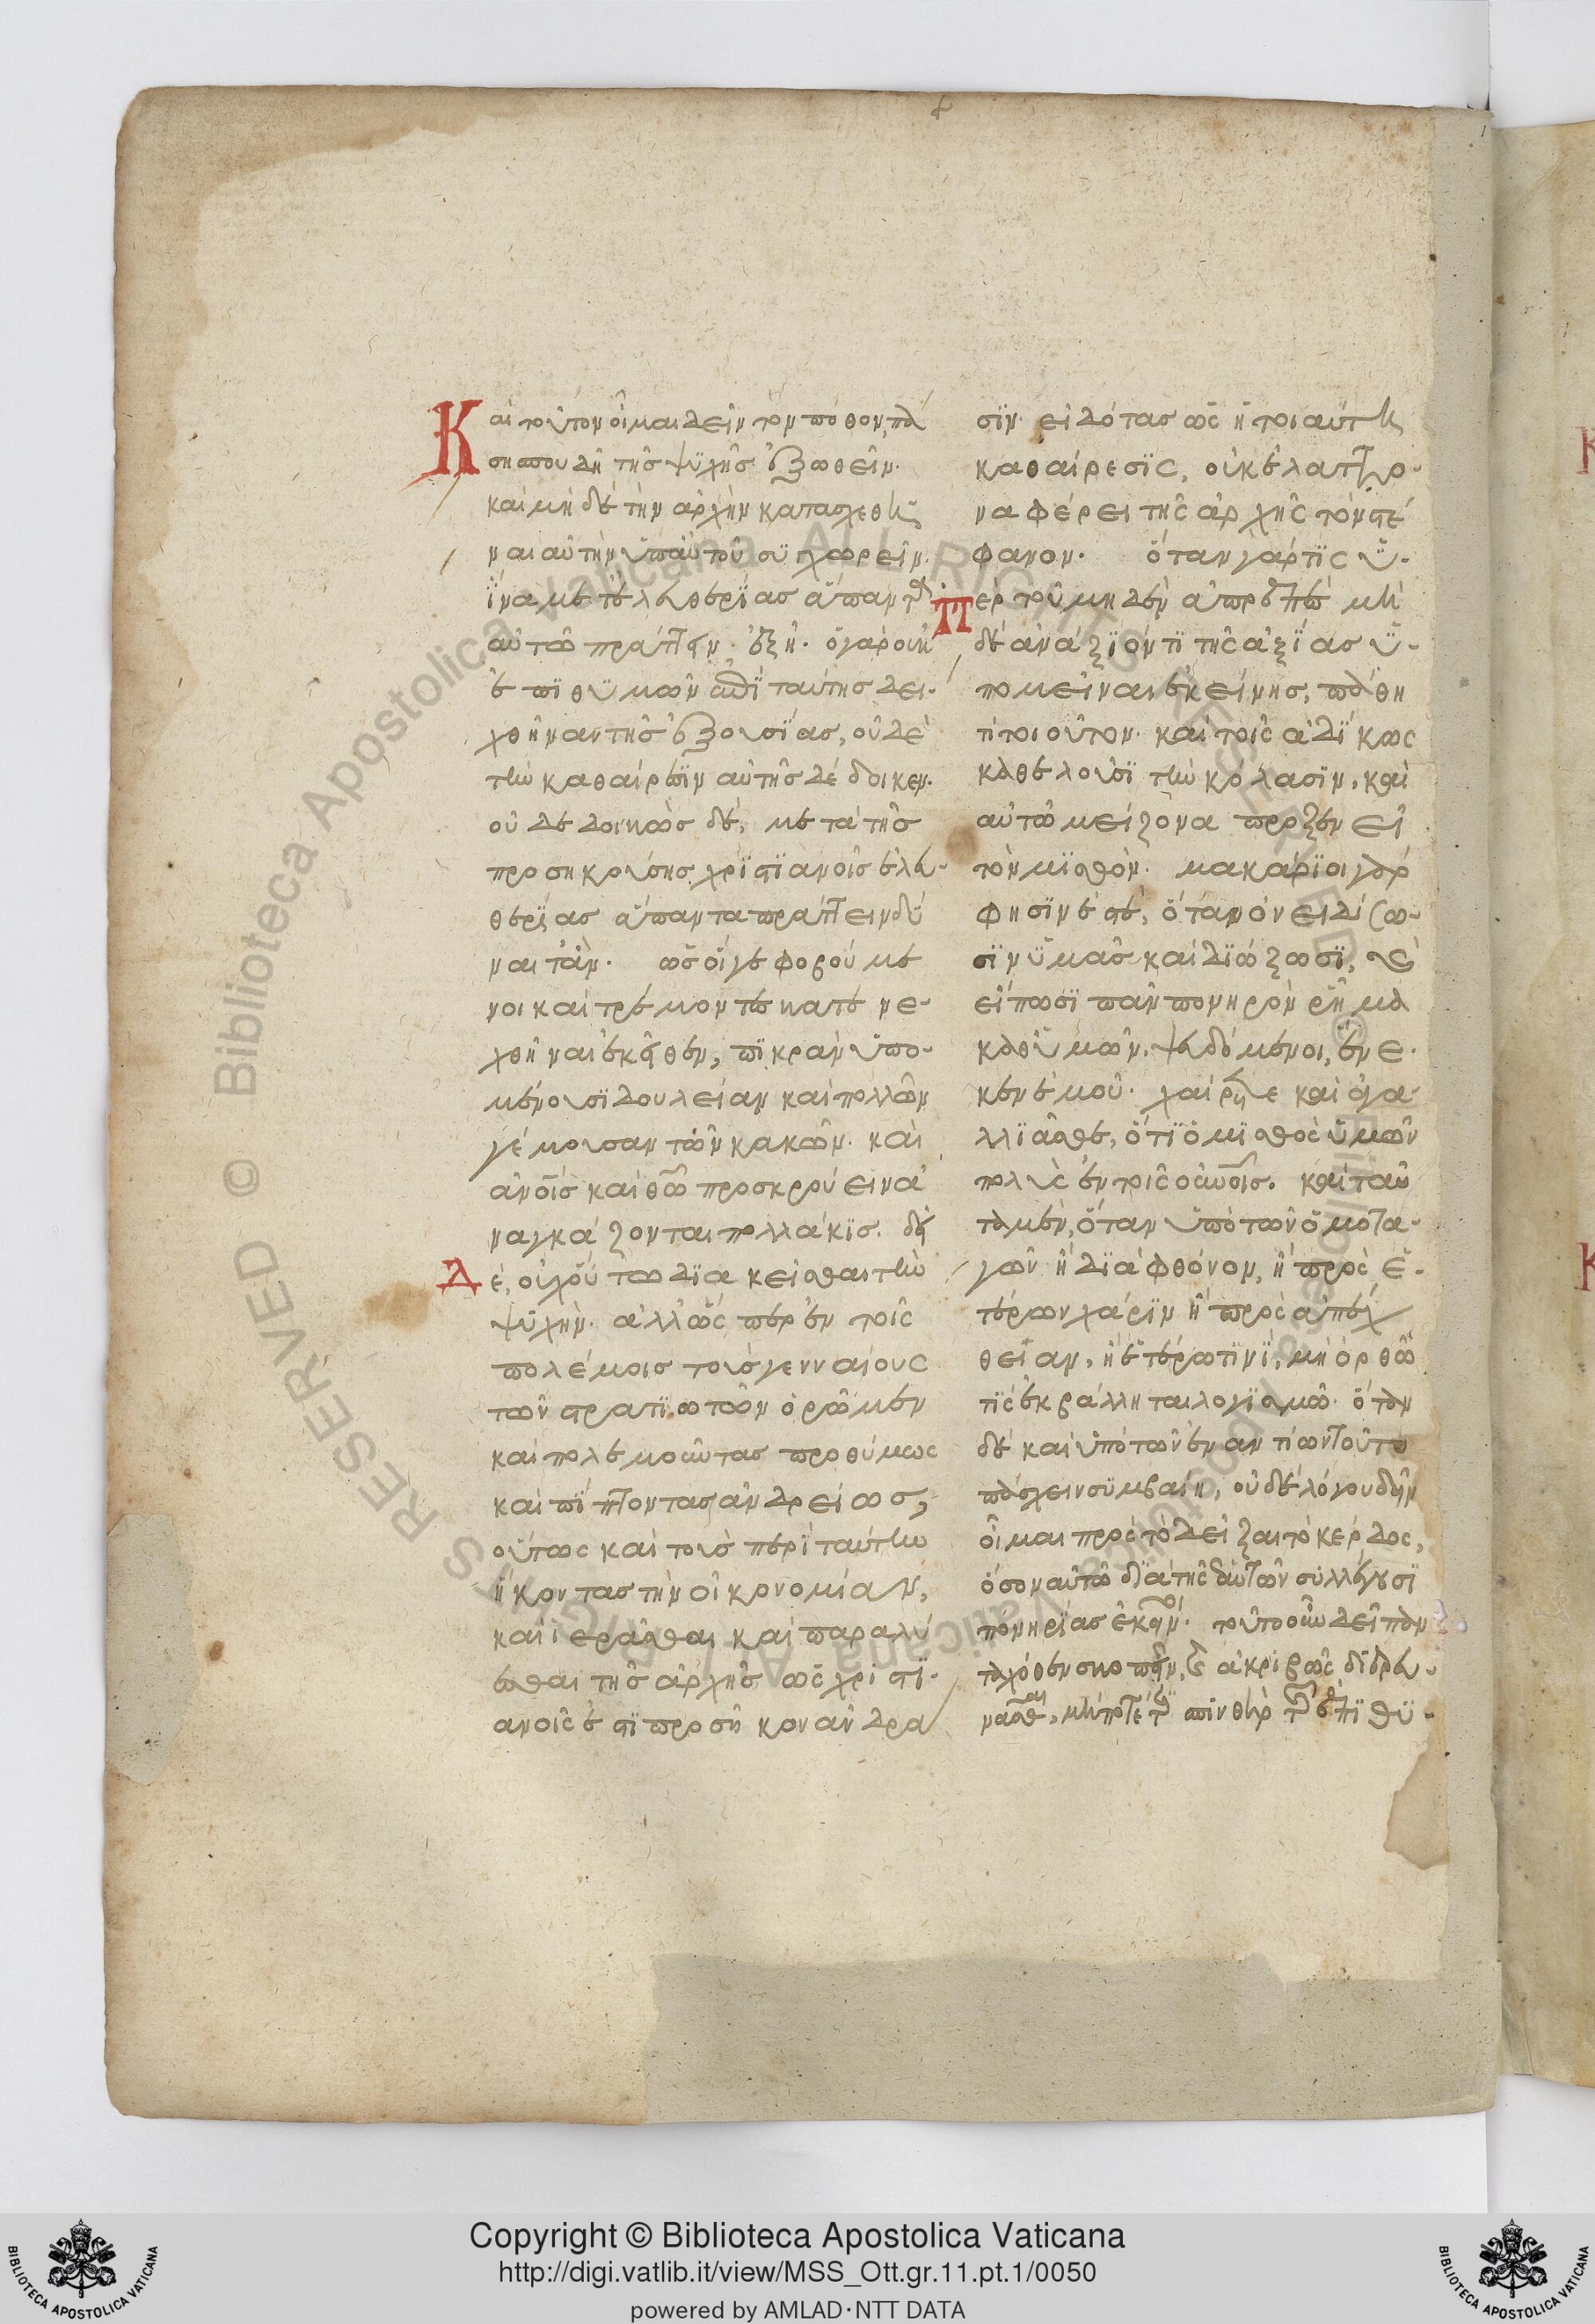 Καὶ τοῦτον οἶμαι δεῖν τὸν πόθον, πά
σῃ σπουδῇ τῆς ψυχῆς ἐξωθεῖν.
καὶ μηδὲ τὴν ἀρχὴν κατασχεθῆ
ναι αὐτὴν ὑπ' αὐτοῦ συγχωρεῖν.
ἵνα μετ' ἐλευθερίας ἅπαντα
αὐτῶ πράττειν ἐξῆ. ὁ γὰρ οὐκ
ἐπιθυμῶν ἐπὶ ταύτης δει-
χθῆναι τῆς ἐξουσίας, οὐδὲ
τὴν καθαίρεσιν αὐτῆς δέδοικεν.
οὐ δεδοικὼς δὲ, μετὰ τῆς
προσηκούσης χριστιανοῖς ἐλευ-
θερίας ἅπαντα πράττειν δύ
ναιτ' ἄν. ὡς οἵγε φοβούμε
νοι καὶ τρέμοντες κατενε-
χθῆναι ἐκεῖθεν, πικρὰν ὑπο-
μένουσι δουλείαν καὶ πολλῶν
γέμουσαν τῶν κακῶν. καὶ
ἀνοις καὶ θῶ προσκρούειν ἀ
ναγκάζονται πολλάκις. δεῖ
Δὲ, οὐχ οὕτω διακεῖσθαι τὴν
ψυχὴν. ἀλλ' ὥσπερ ἐν τοῖς
πολέμοις τοὺς γενναίους
τῶν στρατιωτῶν ὁρῶμεν
καὶ πολεμοῦντας προθύμως
καὶ πίπτοντας ἀνδρείως,
οὕτως καὶ τοὺς περὶ ταύτην
ἥκοντας τὴν οἰκονομίαν,
καὶ ἱερᾶσθαι καὶ παραλύ
εσθαι τῆς ἀρχῆς ὡς χριστι-
ανοῖς ἐστι προσῆκον ἄνδρα
σιν. εἰδότας ὡς ἡ τοιαύτη
καθαίρεσις, οὐκ ἐλάττο-
να φέρει τῆς ἀρχῆς τὸν στέ
φανον. ὅταν γάρ τις ὑ-
Πὲρ τοῦ μηδὲν ἀπρεπὲς μη
δὲ ἀνάξιόν τι τῆς ἀξίας ὑ-
πομεῖναι ἐκείνης, πάθη
τι τοιοῦτον. καὶ τοῖς ἀδίκως
καθελοῦσι τὴν κόλασιν, καὶ
αὐτῶ μείζονα προξενεῖ
τὸν μισθὸν. μακάριοι γὰρ
φησὶν ἐστὲ, ὅταν ὀνειδίσω-
σιν ὑμᾶς καὶ διώξωσι, καὶ
εἴπωσι πᾶν πονηρὸν ῥῆμα
καθ' ὑμῶν, ψευδόμενοι, ἕνε-
κεν ἐμοῦ. χαίρετε καὶ ἀγα-
λλιᾶσθε, ὅτι ὁ μισθὸς ὑμῶν
πολὺς ἐν τοῖς οὐνοῖς. καὶ ταῦ
τα μὲν, ὅταν ὑπὸ τῶν ὁμοτα-
γῶν ἢ διὰ φθόνον, ἢ πρὸς ἑ-
τέρων χάριν ἢ πρὸς ἀπέχ
θειαν, ἢ ἑτέρω τινὶ, μὴ ὀρθῶ
τις ἐκβάλληται λογισμῶ. ὅταν
δὲ καὶ ὑπὸ τῶν ἐναντίων τοῦτο
πάσχειν συμβαίη, οὐδὲ λόγου δεῖν
οἶμαι πρὸς τὸ δεῖξαι τὸ κέρδος,
ὅσον αὐτῶ διὰ τῆς ἑαυτῶν συλλέγουσι
πονηρίας ἐκεῖνοι. τοῦτο οὖν δεῖ παν
ταχόθεν σκοπεῖν, καὶ ἀκριβῶς διερευ-
νᾶσθαι, μήποτέ τις σπινθὴρ τῆς ἐπιθυ-